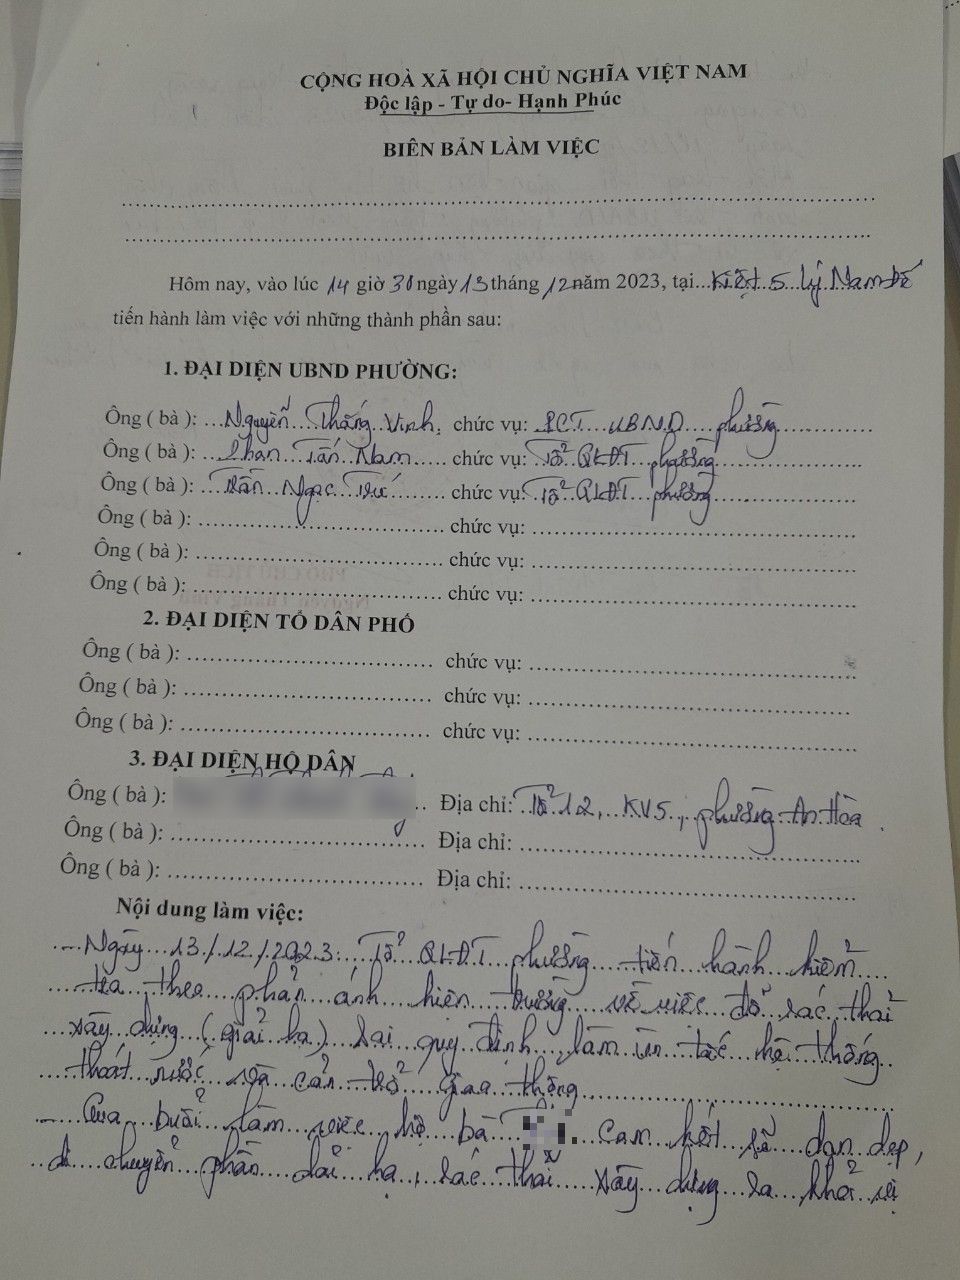 CỘNG HOÀ XÃ HỘI CHỦ NGHĨA VIỆT NAM
Độc lập - Tự do- Hạnh Phúc
BIÊN BẢN LÀM VIỆC
Hôm nay, vào lúc 14 giờ 30 ngày 13 tháng 12 năm 2023, tại Kiệt 5 Lý Nam Đế
tiến hành làm việc với những thành phần sau:
1. ĐẠI DIỆN UBND PHƯỜNG:
Ông ( bà ): Nguyễn Thắng Vinh chức vụ: PCT UBND phường
Ông ( bà ): Phan Tấn Nam chức vụ: Tổ QLĐT phường
Ông ( bà ): Trần Ngọc chức vụ: Tổ QLĐT phường
Ông ( bà ): chức vụ:
Ông ( bà ): chức vụ:
Ông ( bà ): chức vụ:
2. ĐẠI DIỆN TỔ DÂN PHỐ
Ông ( bà ): chức vụ:
Ông ( bà ): chức vụ:
Ông ( bà ): chức vụ:
3. ĐẠI DIỆN HỘ DÂN
Ông ( bà ): Địa chỉ: Tổ 12, KV5, phường An Hòa
Ông ( bà ): Địa chỉ:
Ông ( bà ): Địa chỉ:
Nội dung làm việc:
- Ngày 13/12/2023: Tổ QLĐT phường tiến hành kiểm
tra theo phản ánh hiện trường về việc đổ xác thải
xây dựng (giải hạ) sai quy định, làm ùn tắc hệ thống
thoát nước và cản trở giao thông
- Qua buổi làm việc hộ bà cam kết sẽ dọn dẹp,
di chuyển phần dải hạ, xác thải xây dựng ra khỏi vị